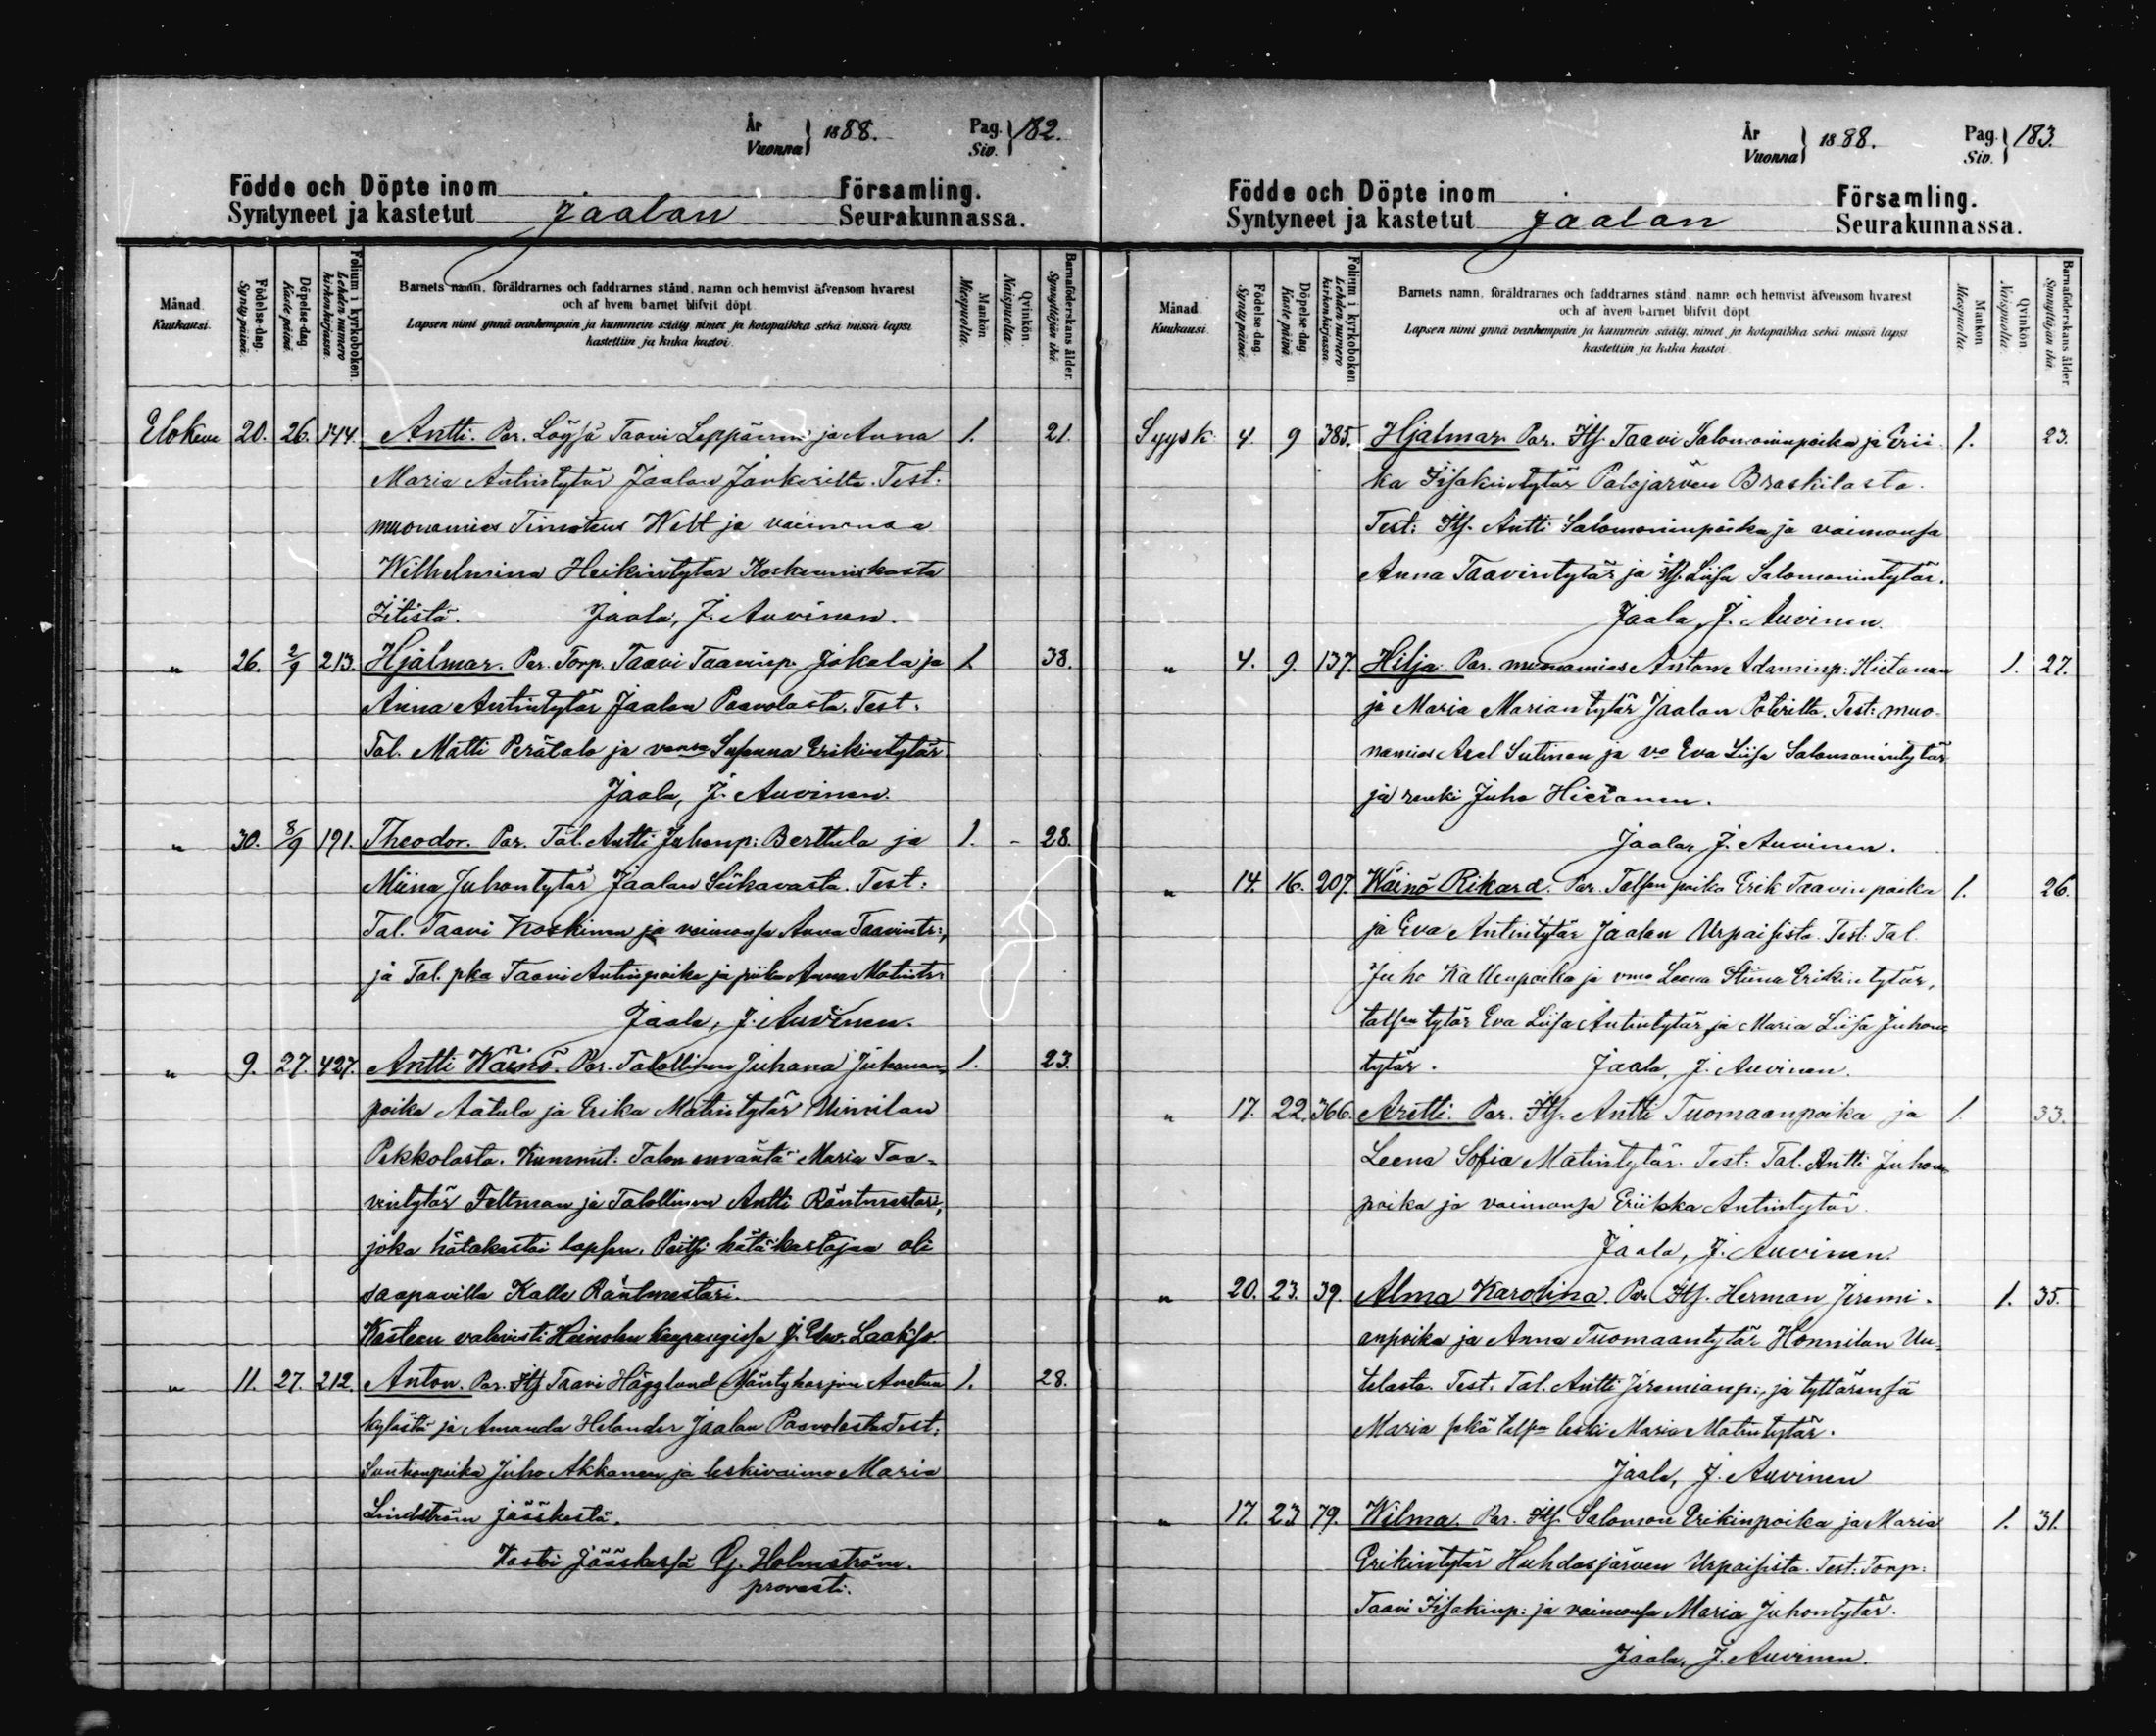 År
Vuonna } 1888.
Pag.
Siv. } 182.
Födde och Döpte inom Församling.
Syntyneet ja kastetut Jaalan Seurakunnassa.
Månad. Kuukausi.
Födelse-dag. Synty päivä.
Döpelse-dag. Kaste päivä.
Folium i kyrkoboken. Lehden numero kirkonkirjassa.
Barnets namn, föräldrarnes och faddrarnes stånd, namn och hemvist äfvensom hvarest
och af hvem barnet blifvit döpt.
Lapsen nimi ynnä vanhempain ja kummein sääty, nimet ja kotopaikka sekä missä lapsi
kastettiin ja kuka kastoi.
Mankön. Miespuolia.
Qvinkön. Naispuolia.
Barnaföderskans ålder. Synnyttäjän ikä.
Elokuu 20. 26. 144. Antti. Par. Löysä Taavi Leppänen ja Anna 1. 21.
Maria Antintytär Jaalan Junkerilta. Test:
muonamies Timoteus Welt ja vaimonsa
Wilhelmina Heikintytar Koskenniskasta
Iitistä. Jaala, J. Auvinen.
" 26. 2/9 213. Hjalmar. Par. Torp. Taavi Taavinp. Jokela ja 1. 38.
Anna Antintytär Jaalan Paavolasta. Test:
Tal. Matti Perätalo ja vonsa Susanna Erikintytär.
Jaala, J. Auvinen.
" 30. 8/9 191. Theodor. Par. Tal. Antti Juhonp: Berttula ja 1. - 28.
Miina Juhontytär Jaalan Siikavasta. Test:
Tal. Taavi Koskinen ja vaimonsa Anna Taavintr:,
ja Tal. pka Taavi Antinpoika ja piika Anna Matintr.
Jaala, J. Auvinen.
" 9. 27. 427. Antti Wäinö. Par. Talollinen Juhana Juhanan- 1. 23.
poika Aatula ja Erika Matintytär Uimilan
Pekkolasta. Kummit: Talon emäntä Maria Taa-
vintytär Feltman ja Talollinen Antti Räntmestari,
joka hätäkastoi lapsen. Paitsi hätäkastajaa oli
saapuvilla Kalle Räntmestari.
Kasteen vahvisti Heinolan kaupungissa J. Edw. Laakso.
" 11. 27. 212. Anton. Par. Its. Taavi Hägglund Mäntyharjun 1. 28.
kylästä ja Amanda Helander Jaalan Paavolasta Test.
Suntionpoika Juho Akkanen ja leskivaimo Maria
Lindström Jääskestä.
Kastoi Jääskessä G. Holmström.
provasti.
År
Vuonna } 1888.
Pag.
Siv. } 183.
Födde och Döpte inom Församling.
Syntyneet ja kastetut Jaalan Seurakunnassa.
Månad. Kuukausi.
Födelse-dag. Synty päivä.
Döpelse-dag. Kaste päivä.
Folium i kyrkoboken. Lehden numero kirkonkirjassa.
Barnets namn, föräldrarnes och faddrarnes stånd, namn och hemvist äfvensom hvarest
och af hvem barnet blifvit döpt.
Lapsen nimi ynnä vanhempain ja kummein sääty, nimet ja kotopaikka sekä missä lapsi
kastettiin ja kuka kastoi.
Mankön. Miespuolia.
Qvinkön. Naispuolia.
Barnaföderskans ålder. Synnyttäjän ikä.
Syysk. 4. 9 385. Hjalmar. Par. Its. Taavi Salomoninpoika ja Erii- 1. 23.
ka Iisakintytär Palojärven Braskilasta.
Test: Its. Antti Salomoninpoika ja vaimonsa
Anna Taavintytär ja Its. Liisa Salomonintytär.
Jaala, J. Auvinen.
" 4. 9. 137. Hilja. Par. muonamies Anton Adaminp: Hietanen 1. 27.
ja Maria Mariantytär Jaalan Poterilta. Test: muo-
namies Axel Sutinen ja vo Eva Liisa Salomonintytär
ja renki Juho Hietanen.
Jaala, J. Auvinen.
" 14. 16. 207. Wäinö Rikard. Par. Talsen poika Erik Taavinpoika 1. 26.
ja Eva Antintytär Jaalan Urpaisista. Test: Tal.
Juho Kallenpoika ja vmo Leena Stiina Erikintytär,
talsen tytär Eva Liisa Antintytär ja Maria Liisa Juhon-
tytär. Jaala, J. Auvinen.
" 17. 22. 366. Antti. Par. Its. Antti Tuomaanpoika ja 1. 33.
Leena Sofia Matintytär. Test: Tal. Antti Juhon-
poika ja vaimonsa Eriikka Antintytär.
Jaala, J. Auvinen.
" 20. 23. 39. Alma Karolina. Par. Its. Herman Jeremi- 1. 35.
anpoika ja Anna Tuomaantytär Honnilan Uu-
telasta. Test. Tal. Antti Jeremianp., ja tyttärensä
Maria sekä talsen leski Maria Matintytär.
Jaala, J. Auvinen
" 17. 23 79. Wilma. Par. Its. Salomon Erikinpoika ja Maria 1. 31.
Erikintytär Huhdasjärven Urpaisista. Test: Torp:
Taavi Iisakinp: ja vaimonsa Maria Juhontytär.
Jaala, J. Auvinen.